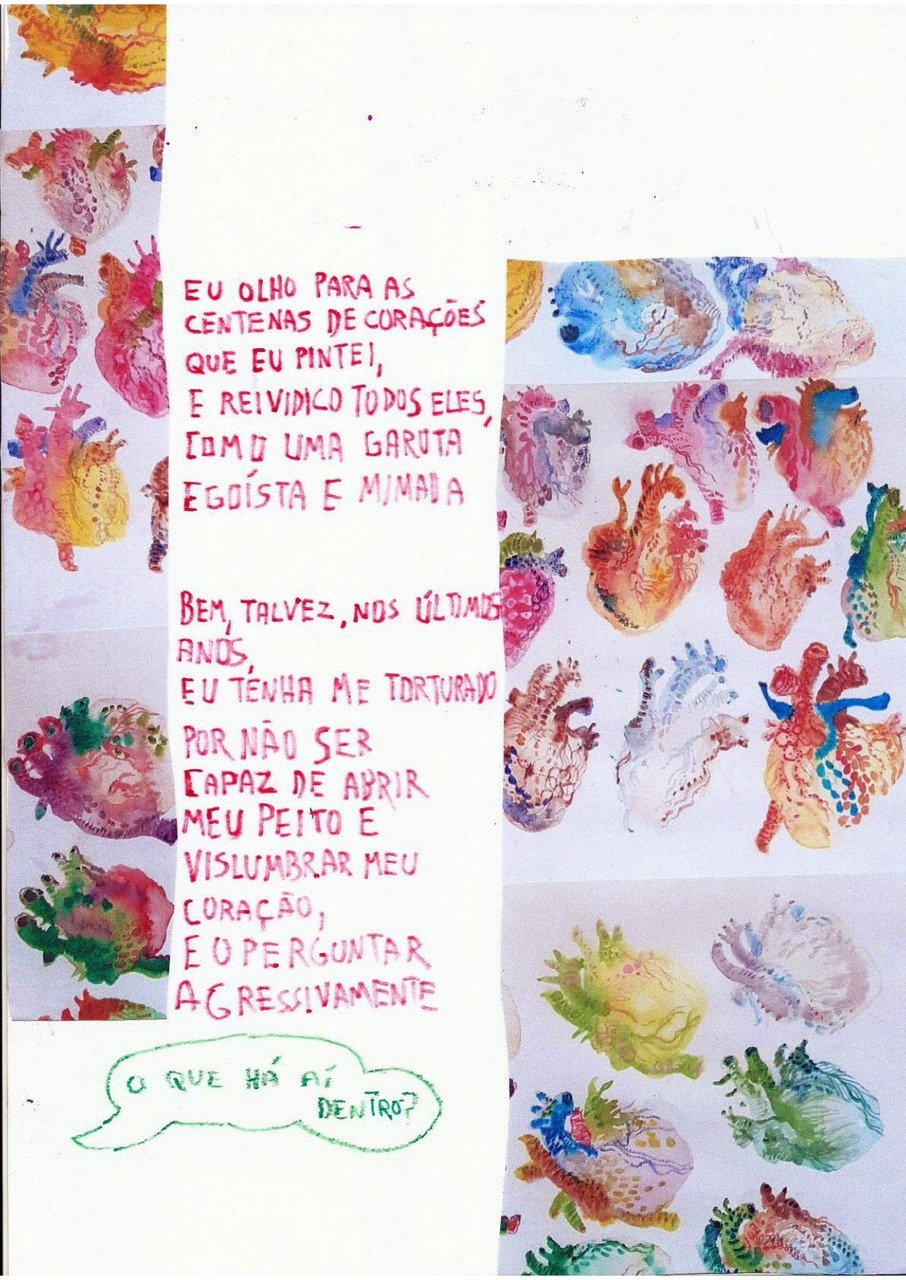 EU OLHO PARA AS
CENTENAS DE CORAÇÕES
QUE EU PINTEI,
E REIVIDICO TODOS ELES,
COMO UMA GAROTA
EGOÍSTA E MIMADA
BEM, TALVEZ, NOS ÚLTIMOS
ANOS,
EU TENHA ME TORTURADO
POR NÃO SER
CAPAZ DE ABRIR
MEU PEITO E
VISLUMBRAR MEU
CORAÇÃO,
E O PERGUNTAR
AGRESSIVAMENTE
O QUE HÁ AÍ
DENTRO?